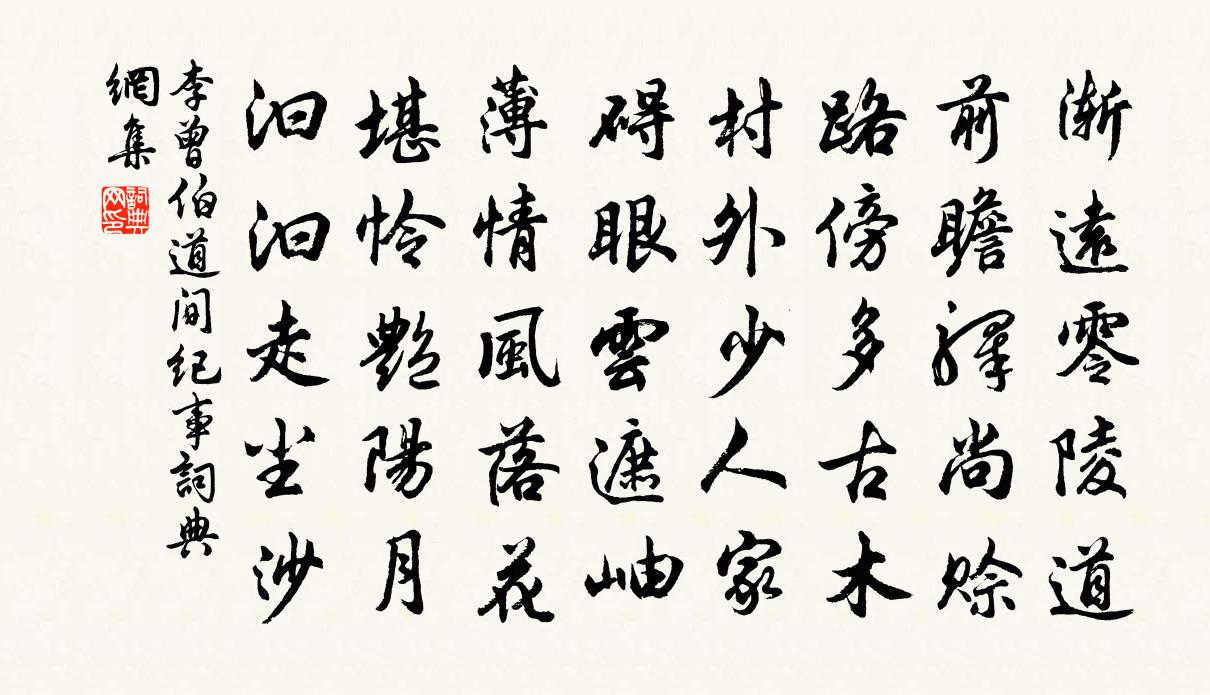 漸遠零陵道
前瞻驛尚賒
路傍多古木
村外少人家
碍眼雲遮岫
薄情風落花
堪怜艷陽月
汩汩走尘沙
李曾伯道间纪事詞典
網集
詞典网印